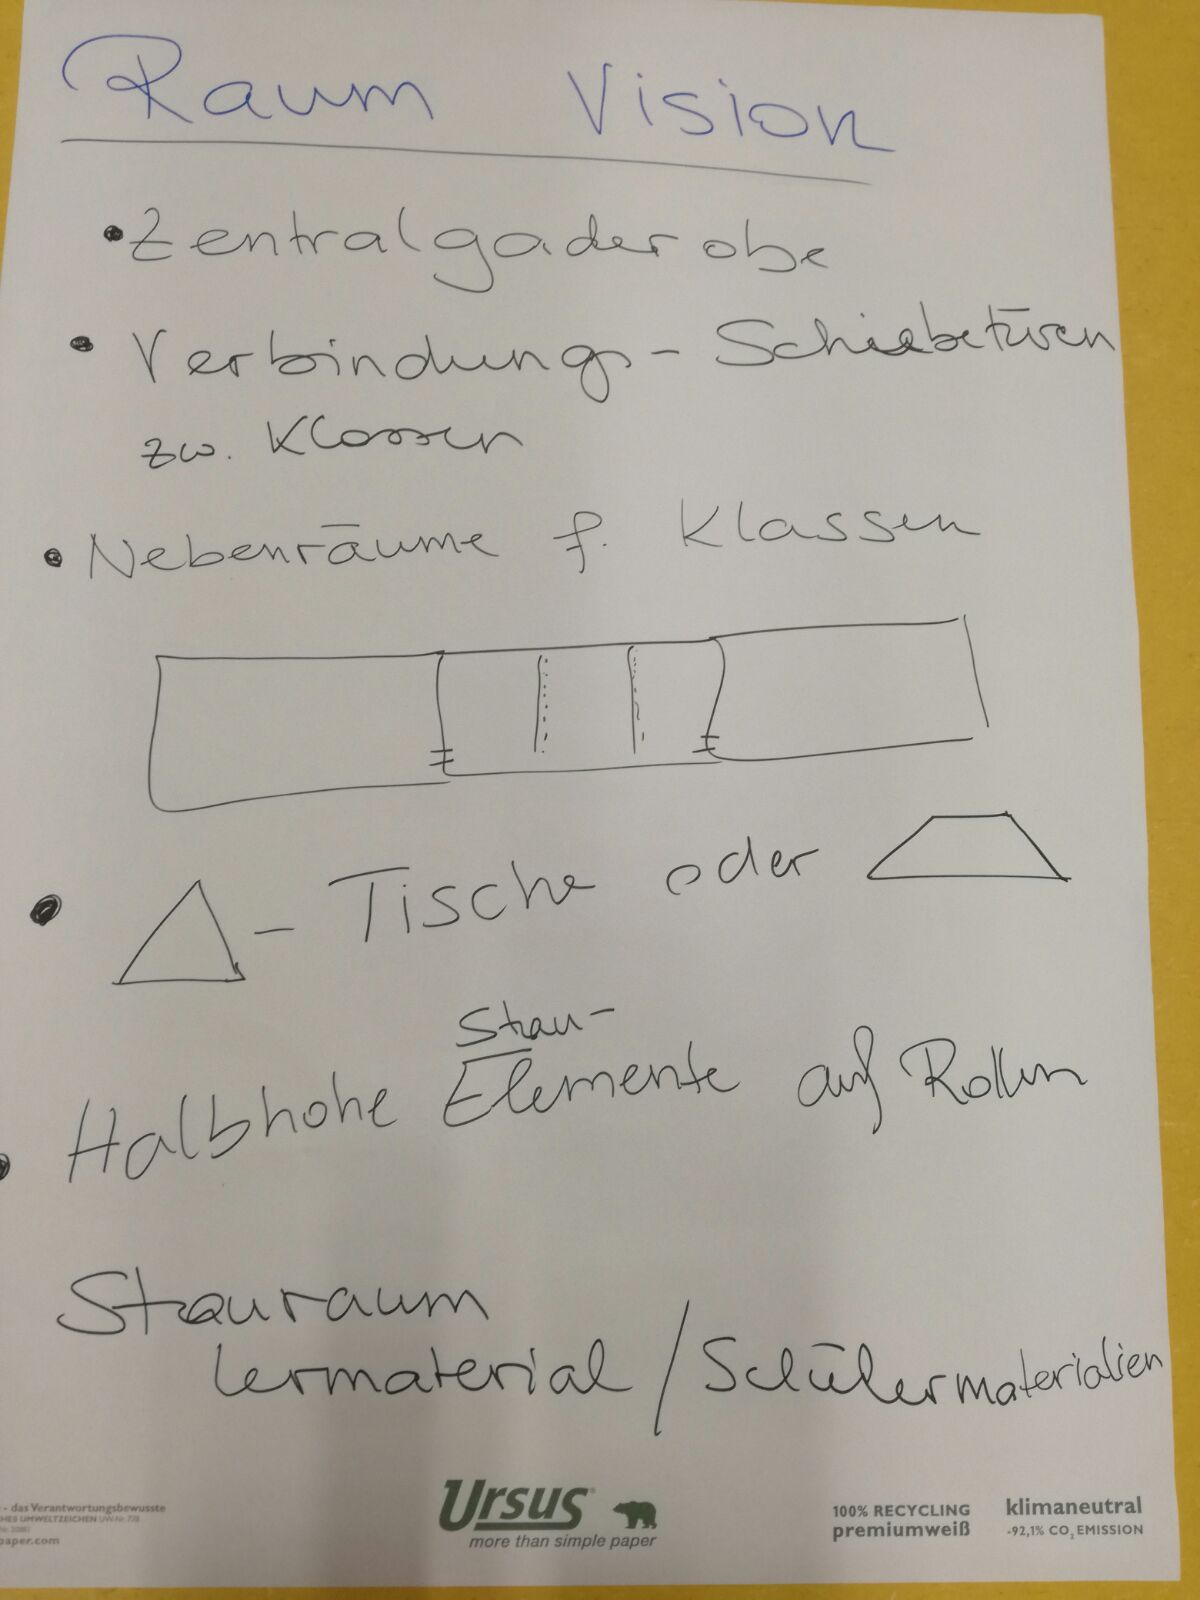 Raum Vision
• Zentralgaderobe
• Verbindungs- Schiebetüren
zw. Klassen
• Nebenräume f. Klassen
• - Tische oder
Stau-
• Halbhohe Elemente auf Rollen
Stauraum
lermaterial / Schülermaterialien
- das Verantwortungsbewusste
HES UMWELTZEICHEN UW-Nr. 778
paper.com
Ursus
more than simple paper
100% RECYCLING
premiumweiß
klimaneutral
-92,1% CO₂ EMISSION